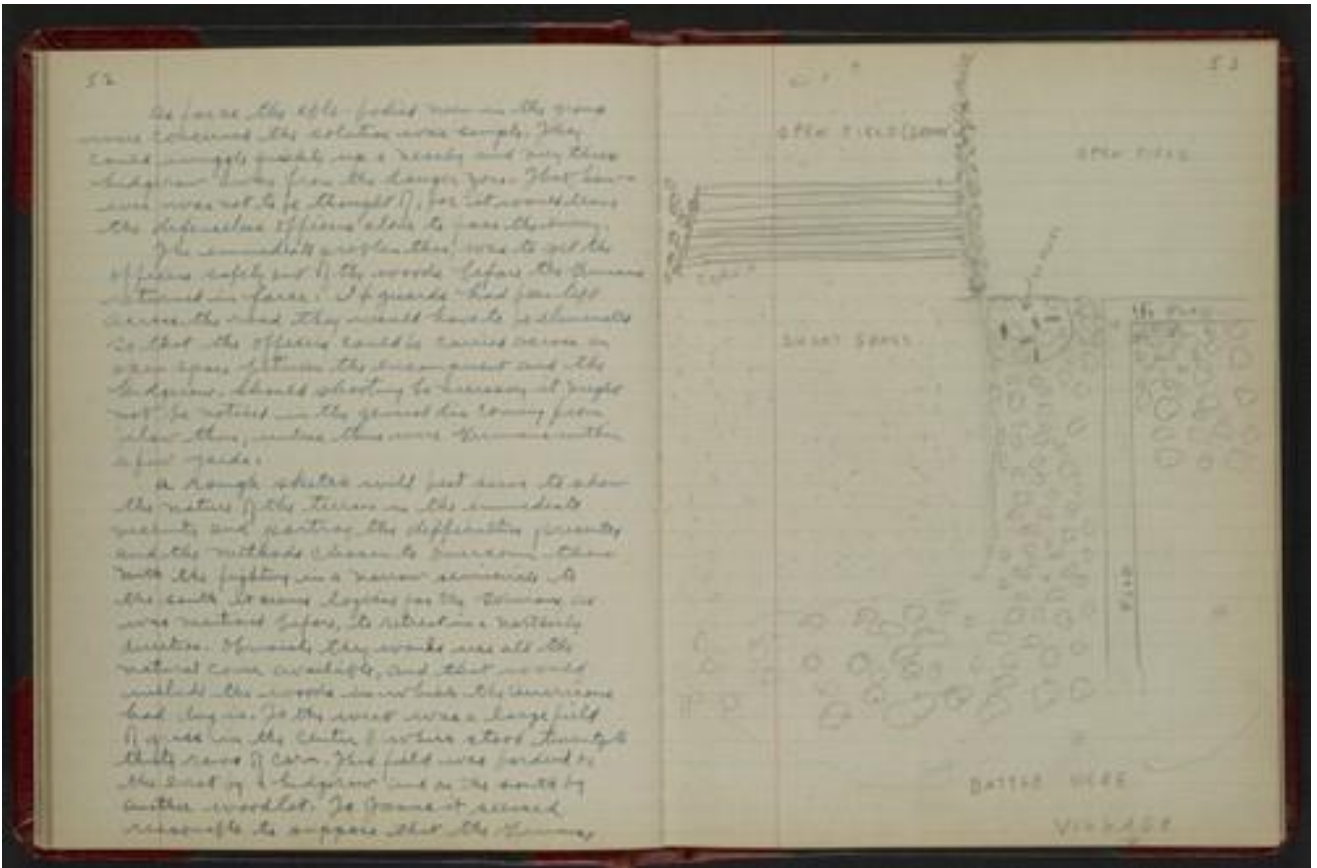 52
As far as the able-bodied men in the group
were concerned the solution was simple. They
could wriggle quickly up a nearby and any three
hedgerow away from the danger zone. That how-
ever was not to be thought of, for it would leave
the defenseless officers alone to face the enemy.
The immediate problem then was to get the
officers safely out of the woods before the Germans
returned in force. If guards had been left
across the road they would have to be eliminated
so that the officers could be carried across an
open space between the encampment and the
hedgerow. Should shooting be necessary it might
not be noticed in the general din coming from
else than, unless there were Germans within
a few yards.
A rough sketch will best serve to show
the nature of the terrain in the immediate
vicinity and portray the difficulties presented
and the methods chosen to overcome them.
With the fighting in a narrow semicircle to
the south it seems logical for the Germans, as
was mentioned before, to retreat in a northerly
direction. Obviously they would use all the
natural cover available, and that would
include the woods in which the Americans
had dug in. To the west was a large field
of grass in the center of where stood twenty to
thirty rows of corn. This field was bordered to
the east by a hedgerow and on the south by
another woodlot. To it seemed
reasonable to suppose that the Germans
53
OPEN FIELD
OPEN FIELD
SHORT GRASS
ROAD
BATTLE HERE
VILLAGE